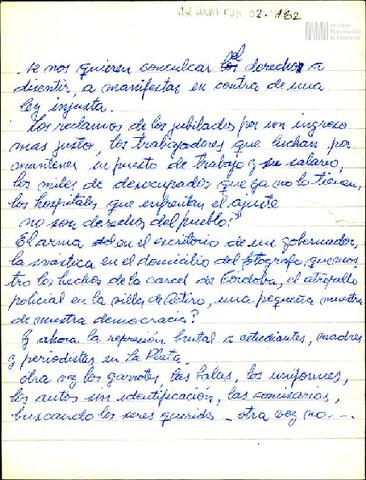 AR ANM FJR 02. 182
Archivo
Nacional de
la Memoria
se nos quieren conculcar el derecho a
disentir, a manifestar en contra de una
ley injusta.
Los reclamos de los jubilados por un ingreso
mas justo, los trabajadores que luchan por
mantener su puesto de trabajo y su salario,
los miles de desocupados que ya no lo tienen,
los hospitales que enfrentan el ajuste
no son derechos del pueblo?
El arma en el escritorio de un gobernador,
la svástica en el domicilio del fotógrafo que mos
tro los hechos de la carcel de Córdoba, el atropello
policial en la villa de Retiro, una pequeña muestra
de nuestra democracia?
Y ahora la represión brutal a estudiantes, madres
y periodistas en La Plata.
otra vez los garrotes, las balas, los uniformes,
los autos sin identificación, las comisarías,
buscando los seres queridos - otra vez no - - -.